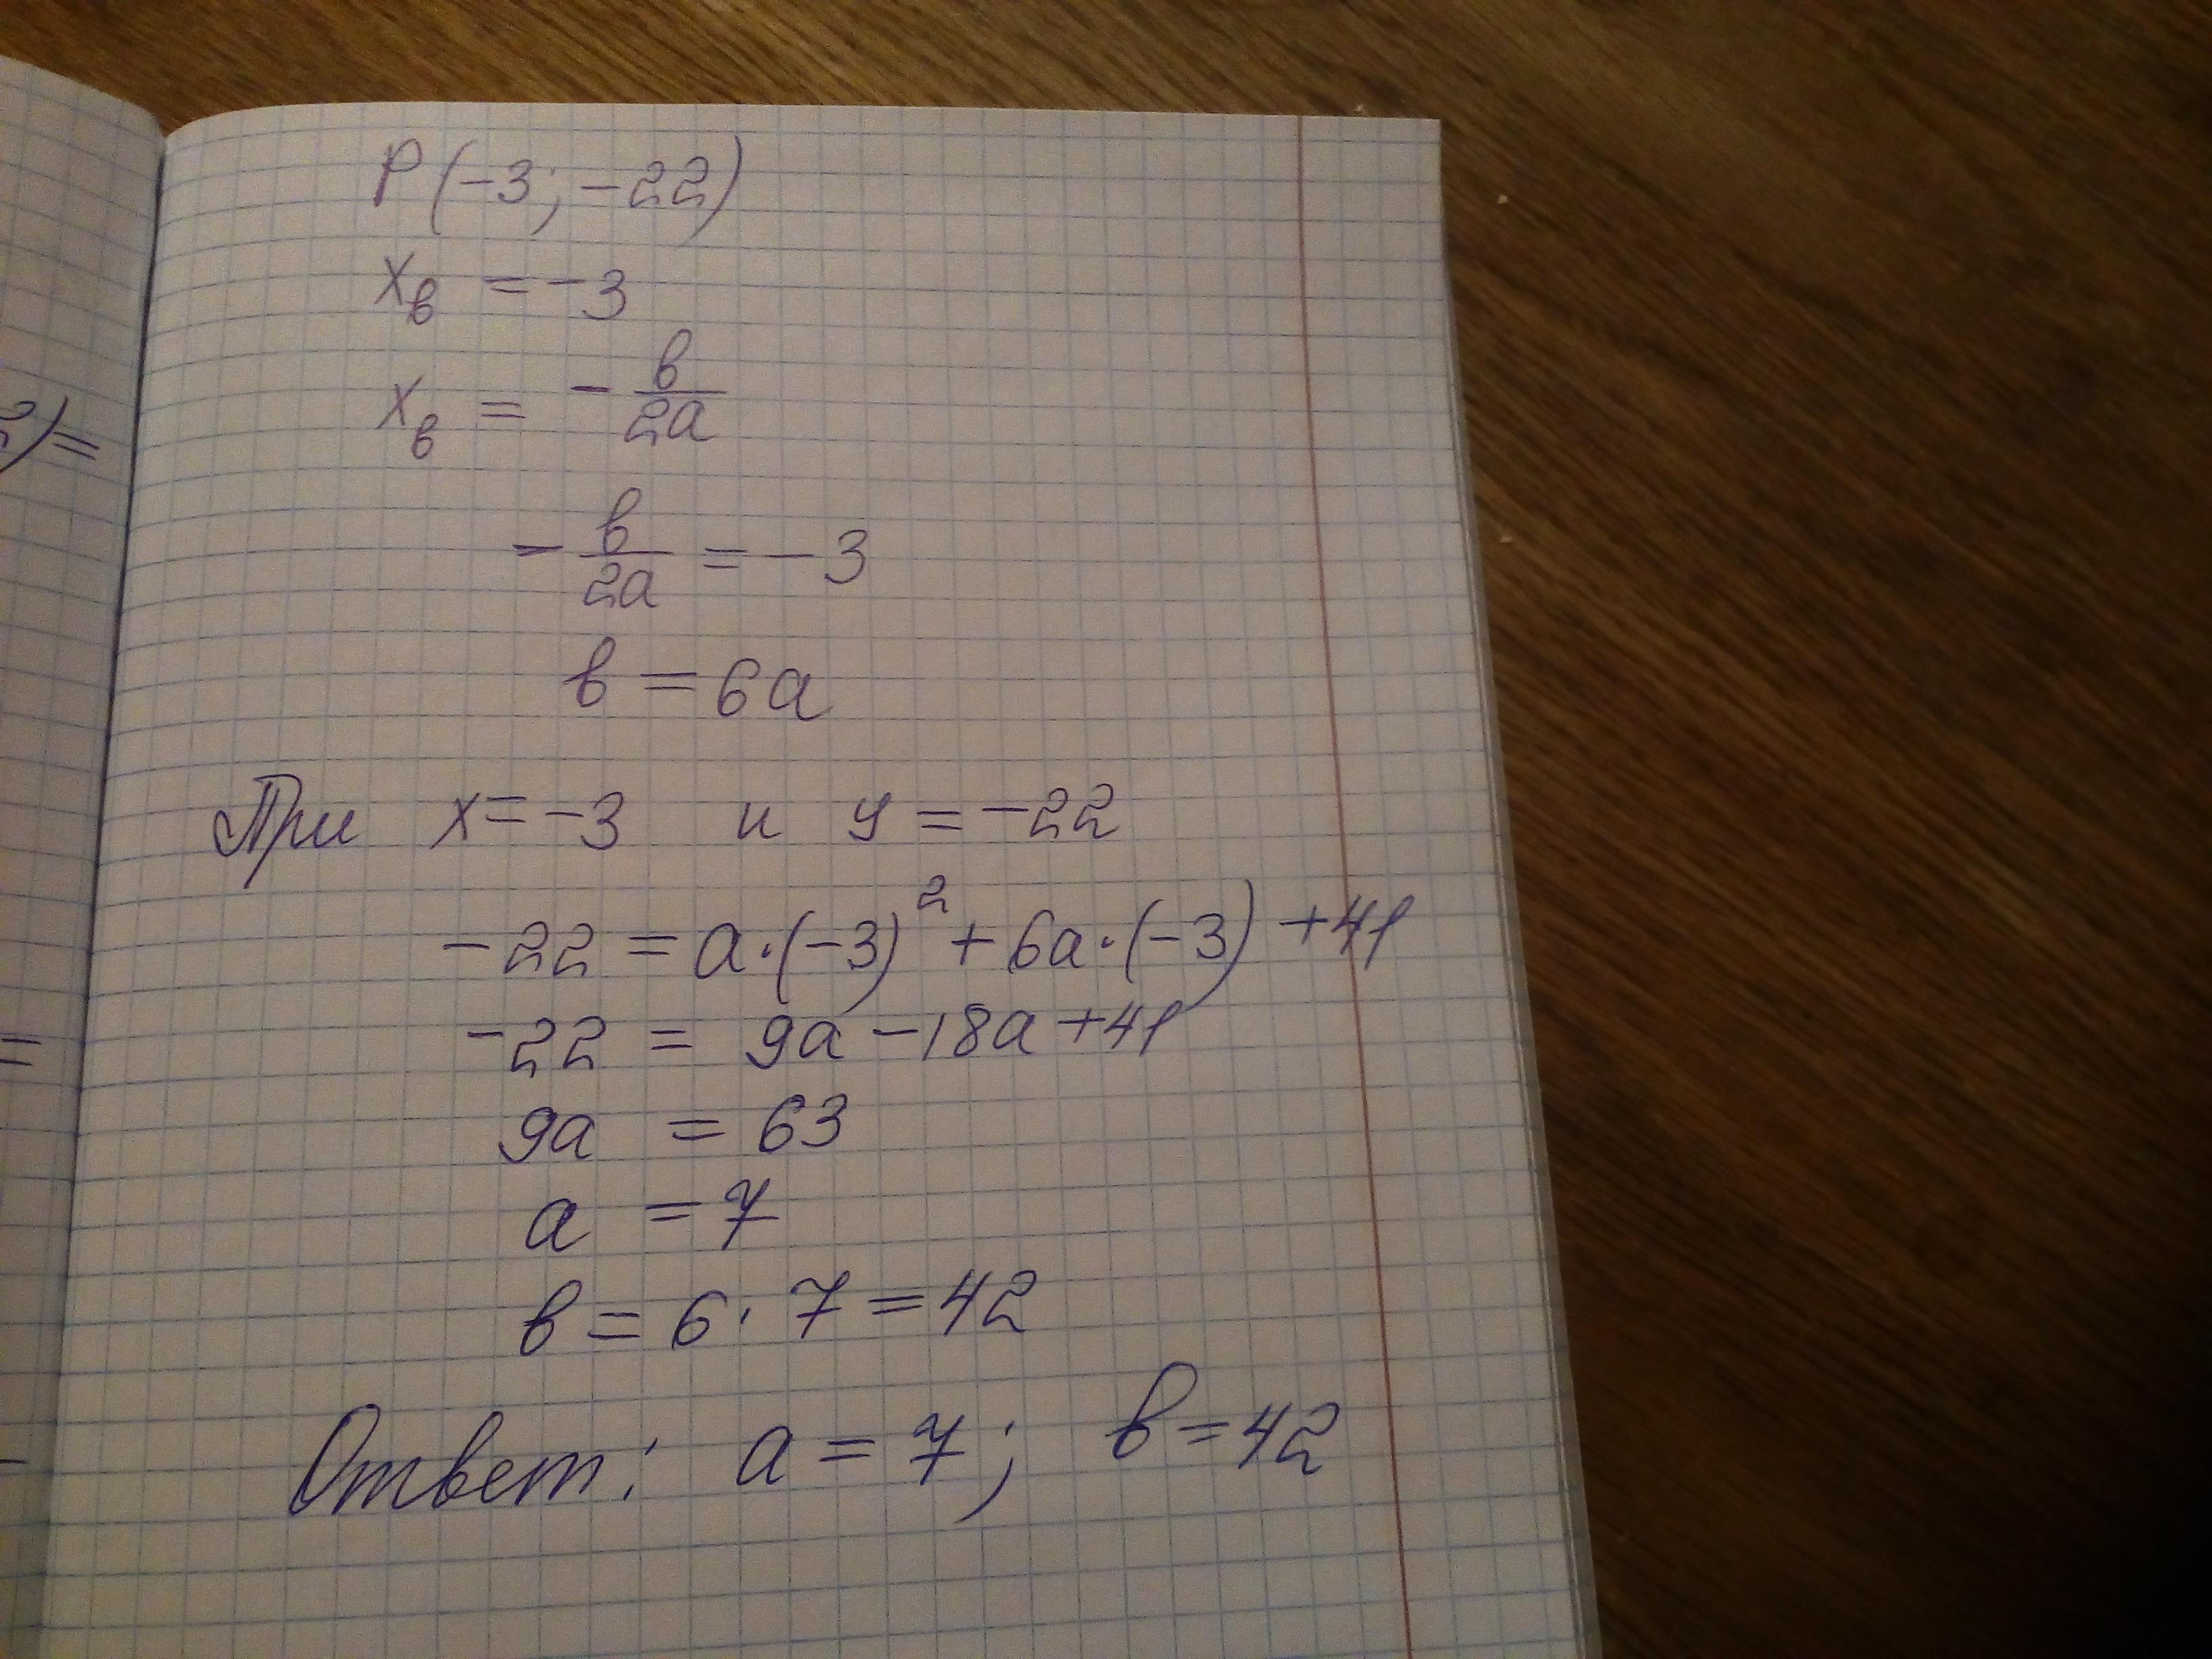 P(-3; -22)
x_в = -3
x_в = - в/2a
- в/2a = -3
в = 6a
При x = -3 и y = -22
-22 = a·(-3)² + 6a·(-3) + 41
-22 = 9a - 18a + 41
9a = 63
a = 7
в = 6·7 = 42
Ответ: a = 7; в = 42
2) =
=
-